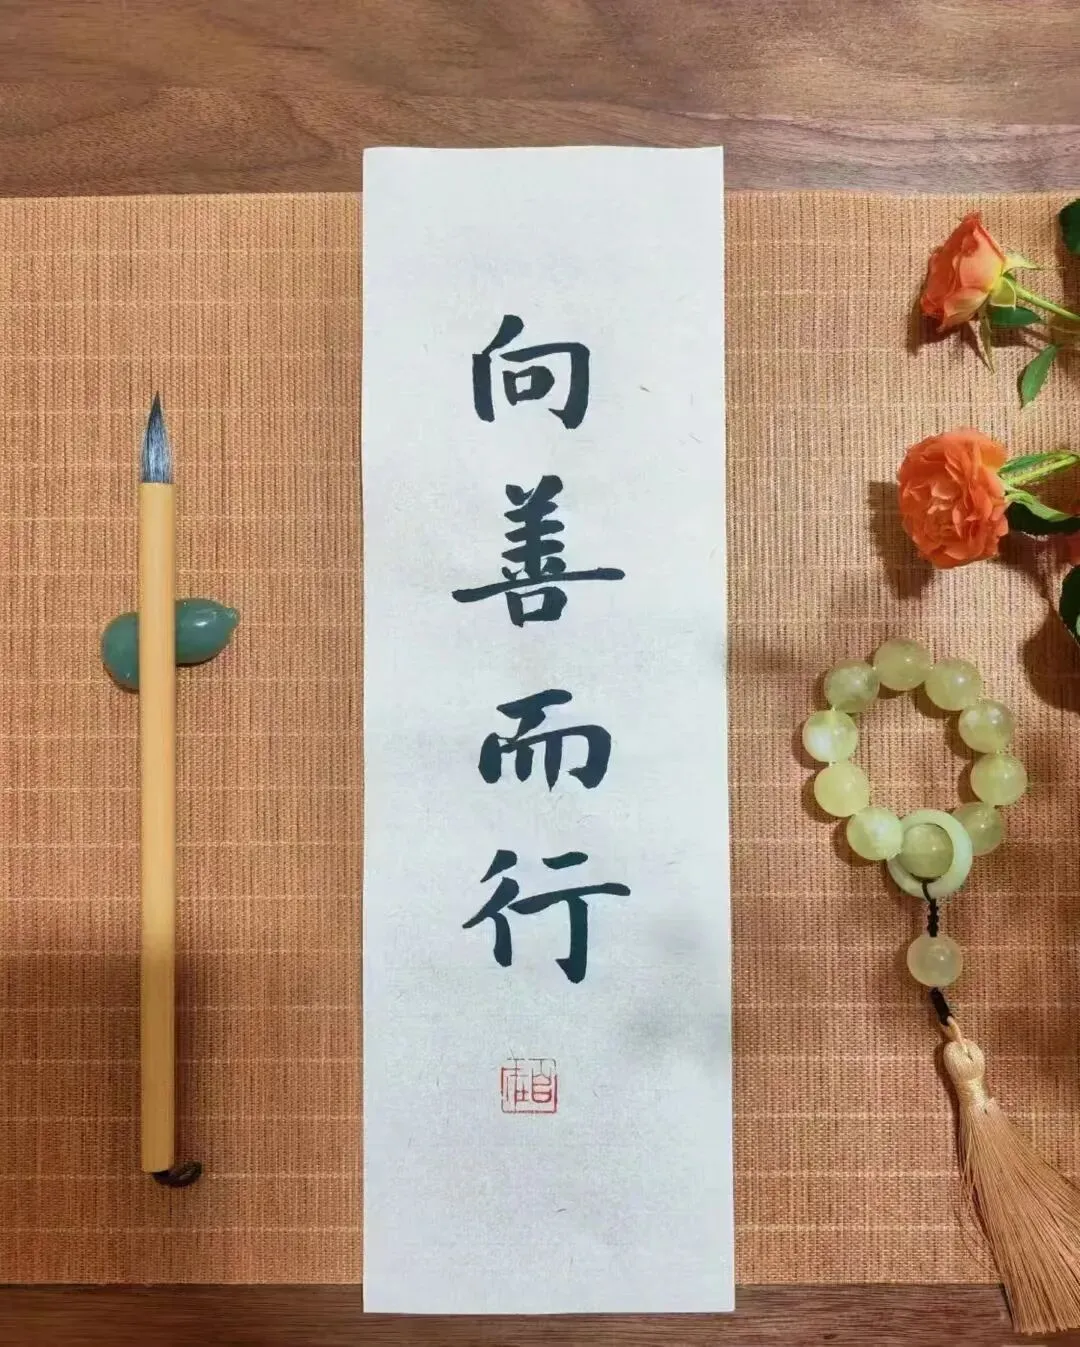 向善而行